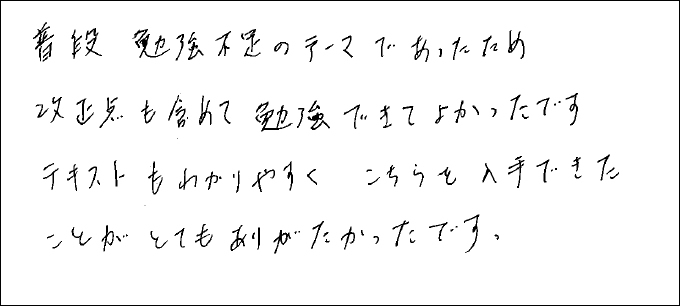 普段 勉強不足のテーマであったため
改正点も含めて 勉強できてよかったです
テキストもわかりやすく こちらを入手できた
ことがとてもありがたかったです。